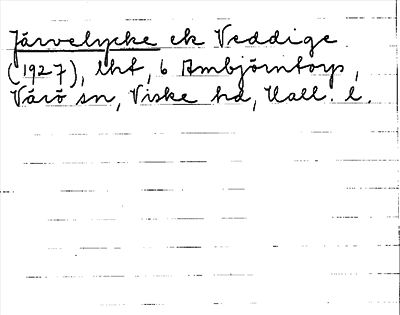 Järvelycke ek Veddige
(1927), lht, 6 Ambjörntorp,
Värö sn, Viske hd, Hall. l.